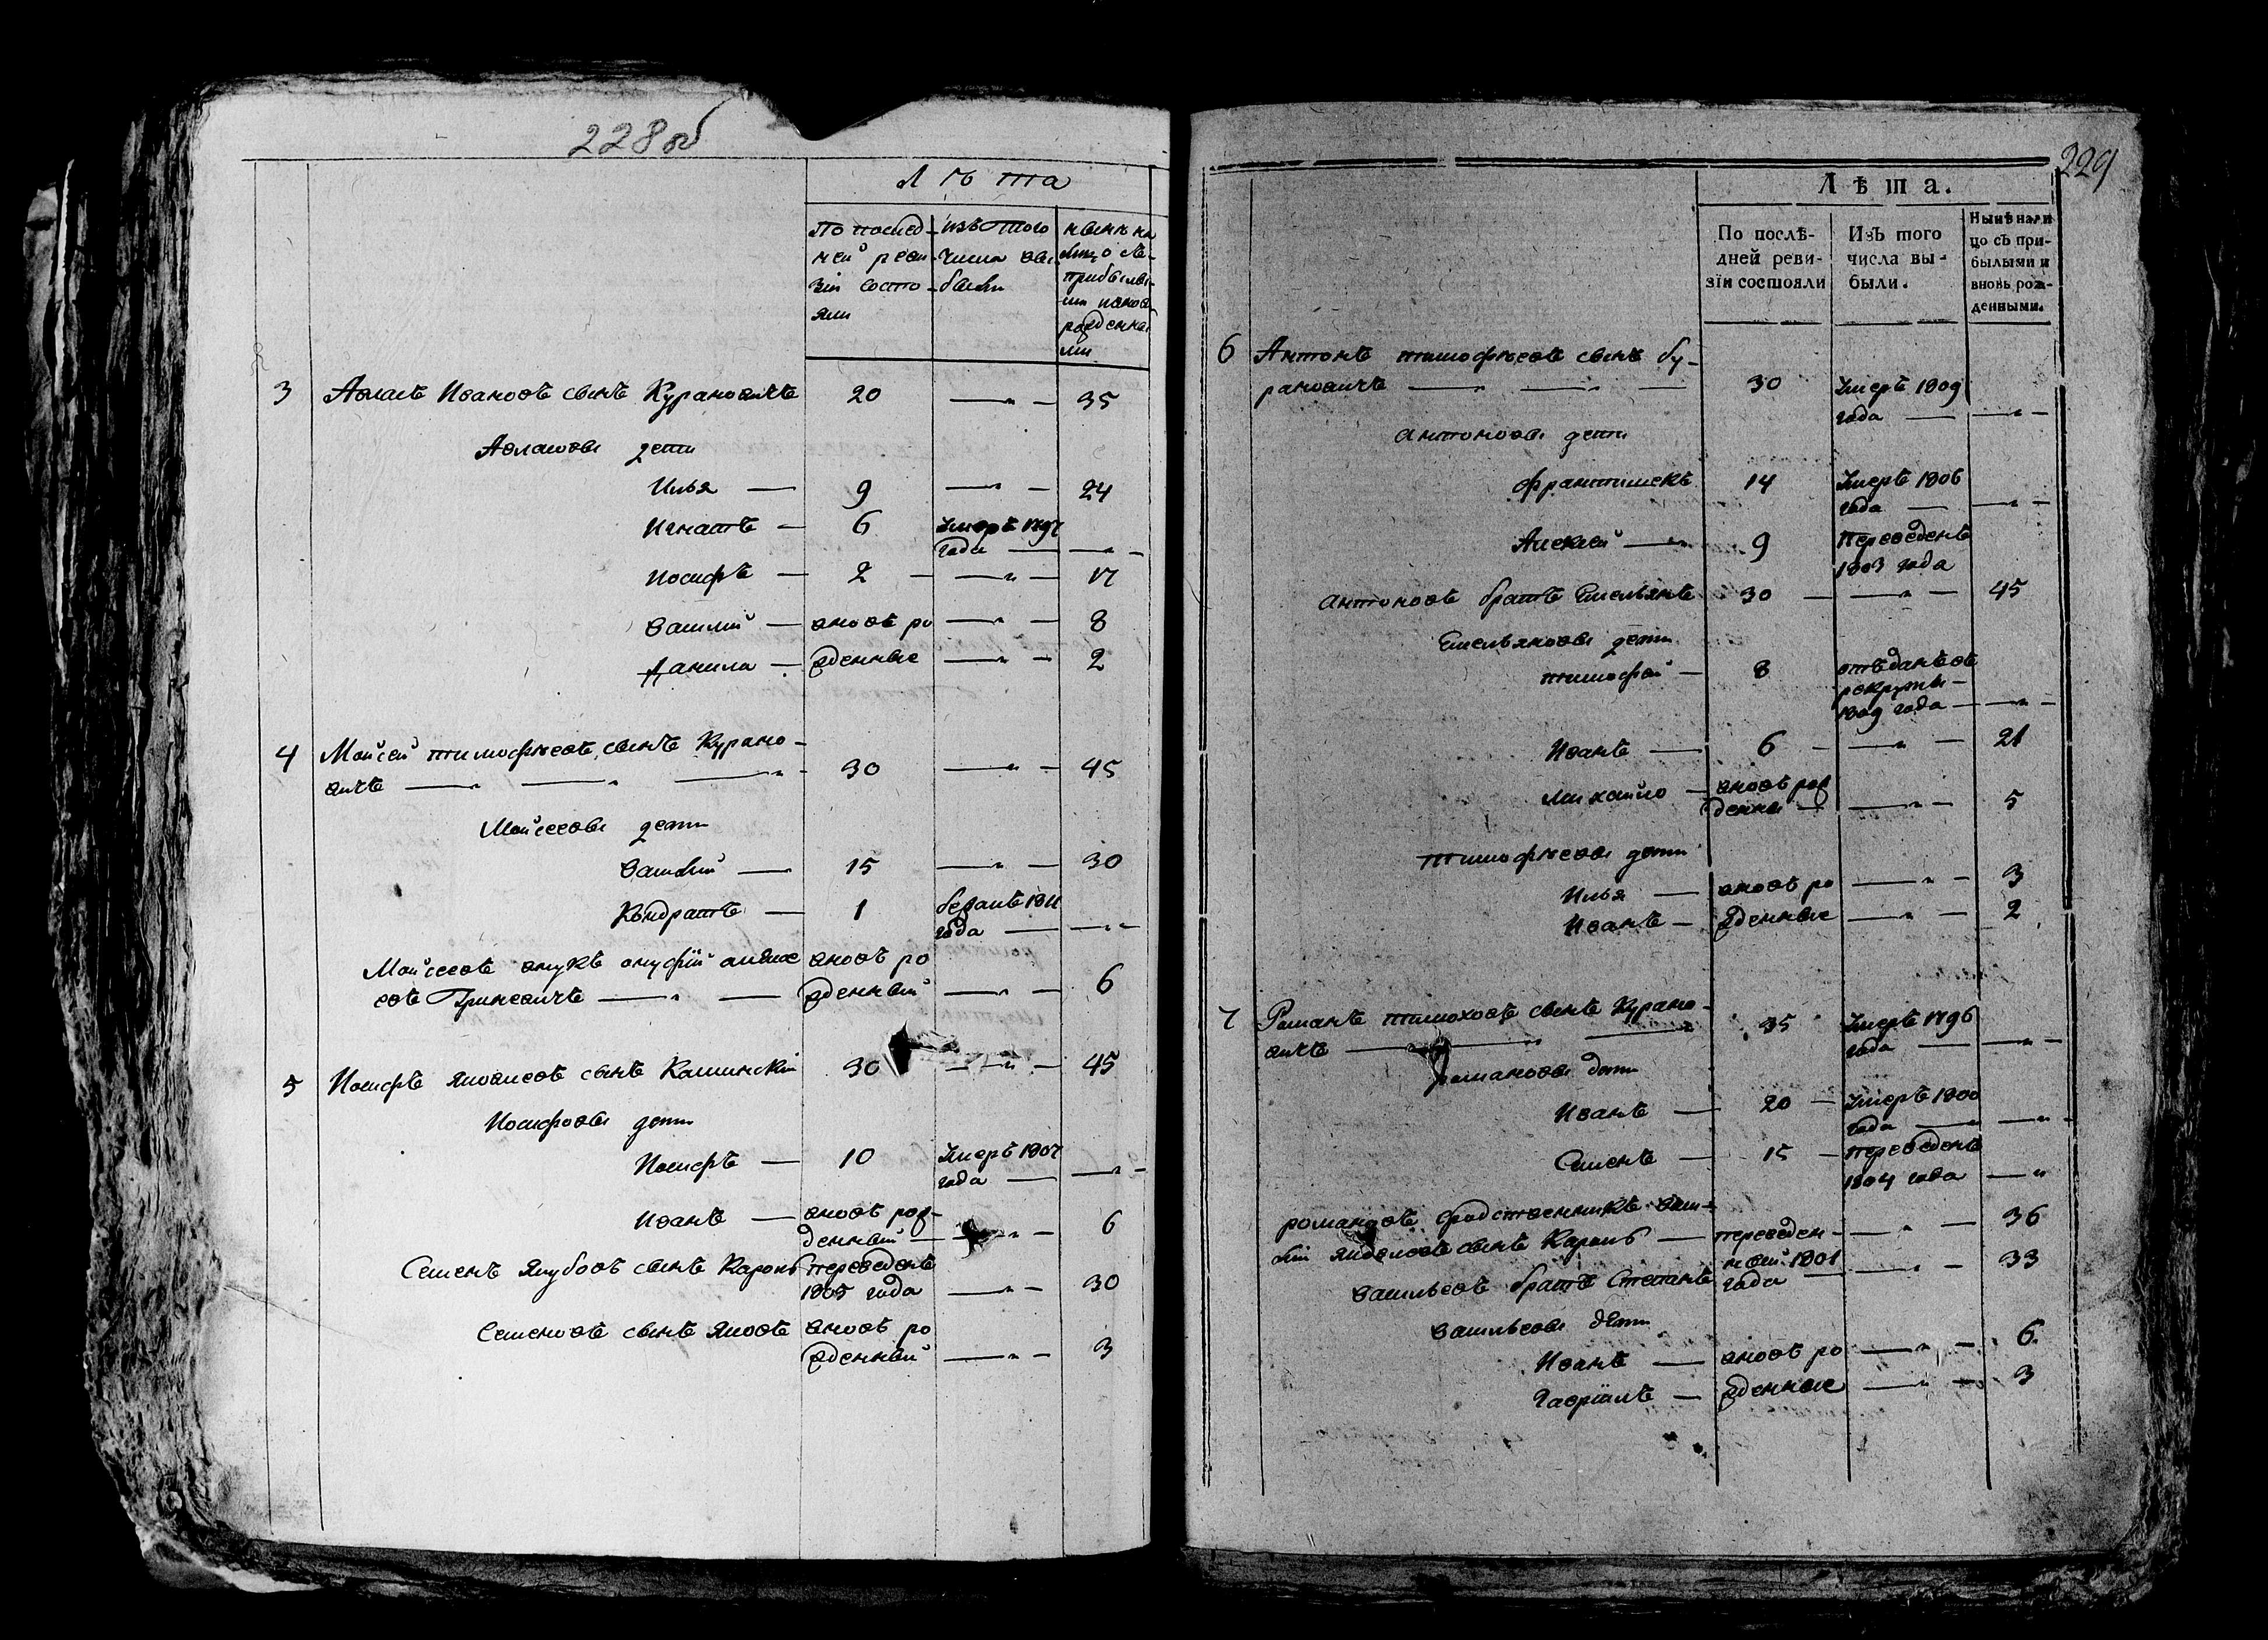 228об
Лѣта
По послед- изъ того нынѣ на
ней реви- числа вы- лицо съ
зіи состо- были прибылы-
яли ми и новоро-
рожденны
ми
3 Авласъ Ивановъ сынъ Курановичъ 20 — " — 35
Авласовы дети
Илья — 9 — " — 24
Игнатъ — 6 Умеръ 1797
года — — " —
Иосифъ — 2 — — " — 17
Василий — вновь ро — " — 8
Данила — жденные — " — 2
4 Мойсей тимофѣевъ сынъ Курано-
вичъ — " — " 30 — " — 45
Мойсеевы дети
Василий — 15 — " — 30
Кондратъ — 1 бежалъ 1811
года — — " —
Мойсеевъ внукъ онуфрій
евъ Гриневичъ — " — вновь ро
жденный — " — 6
5 Иосифъ сынъ Кашинскій 30 — " — 45
Иосифовы дети
Иосифъ — 10 Умеръ 1807
года — — " —
Иванъ — вновь рож-
денный — " — 6
Семенъ Якубовъ сынъ Кароль переведенъ
1805 года — " — 30
Семеновъ сынъ Яковъ вновь ро
жденный — " — 3
229
Лѣта.
По послѣ- Изъ того Нынѣ нали
дней реви- числа вы- цо съ при-
зіи состояли были. былыми и
вновь рож-
денными.
6 Антонъ тимофѣевъ сынъ бу-
рановичъ — " — — 30 Умеръ 1809
года — — " —
антоновы дети
францишекъ 14 Умеръ 1806
года — — " —
Алексей — " 9 Переведенъ
1803 года
антоновъ братъ Емельянъ 30 — — " — 45
Емельяновы дети
тимофей — 8 отъданъ въ
рекруты —
1809 года — — " —
Иванъ — 6 — — " — 21
Михайло — вновь рож
денны — — " — 5
тимофѣевы дети
Илья — вновь ро — " — 3
Иванъ — жденные — " — 2
7 Романъ тимоховъ сынъ Курано-
вичъ — " — " 35 Умеръ 1796
года — — " —
романовы дети
Иванъ — 20 — Умеръ 1800
года — — " —
Семенъ — 15 — переведенъ
1804 года — "
романовъ сродственникъ Васи-
лій сынъ Кароль — переведен- — " — 36
ной 1801
Васильевъ братъ Степанъ года — — " — 33
Васильевы дѣти
Иванъ — вновь ро — " — 6
Гавріилъ — жденные — " — 3